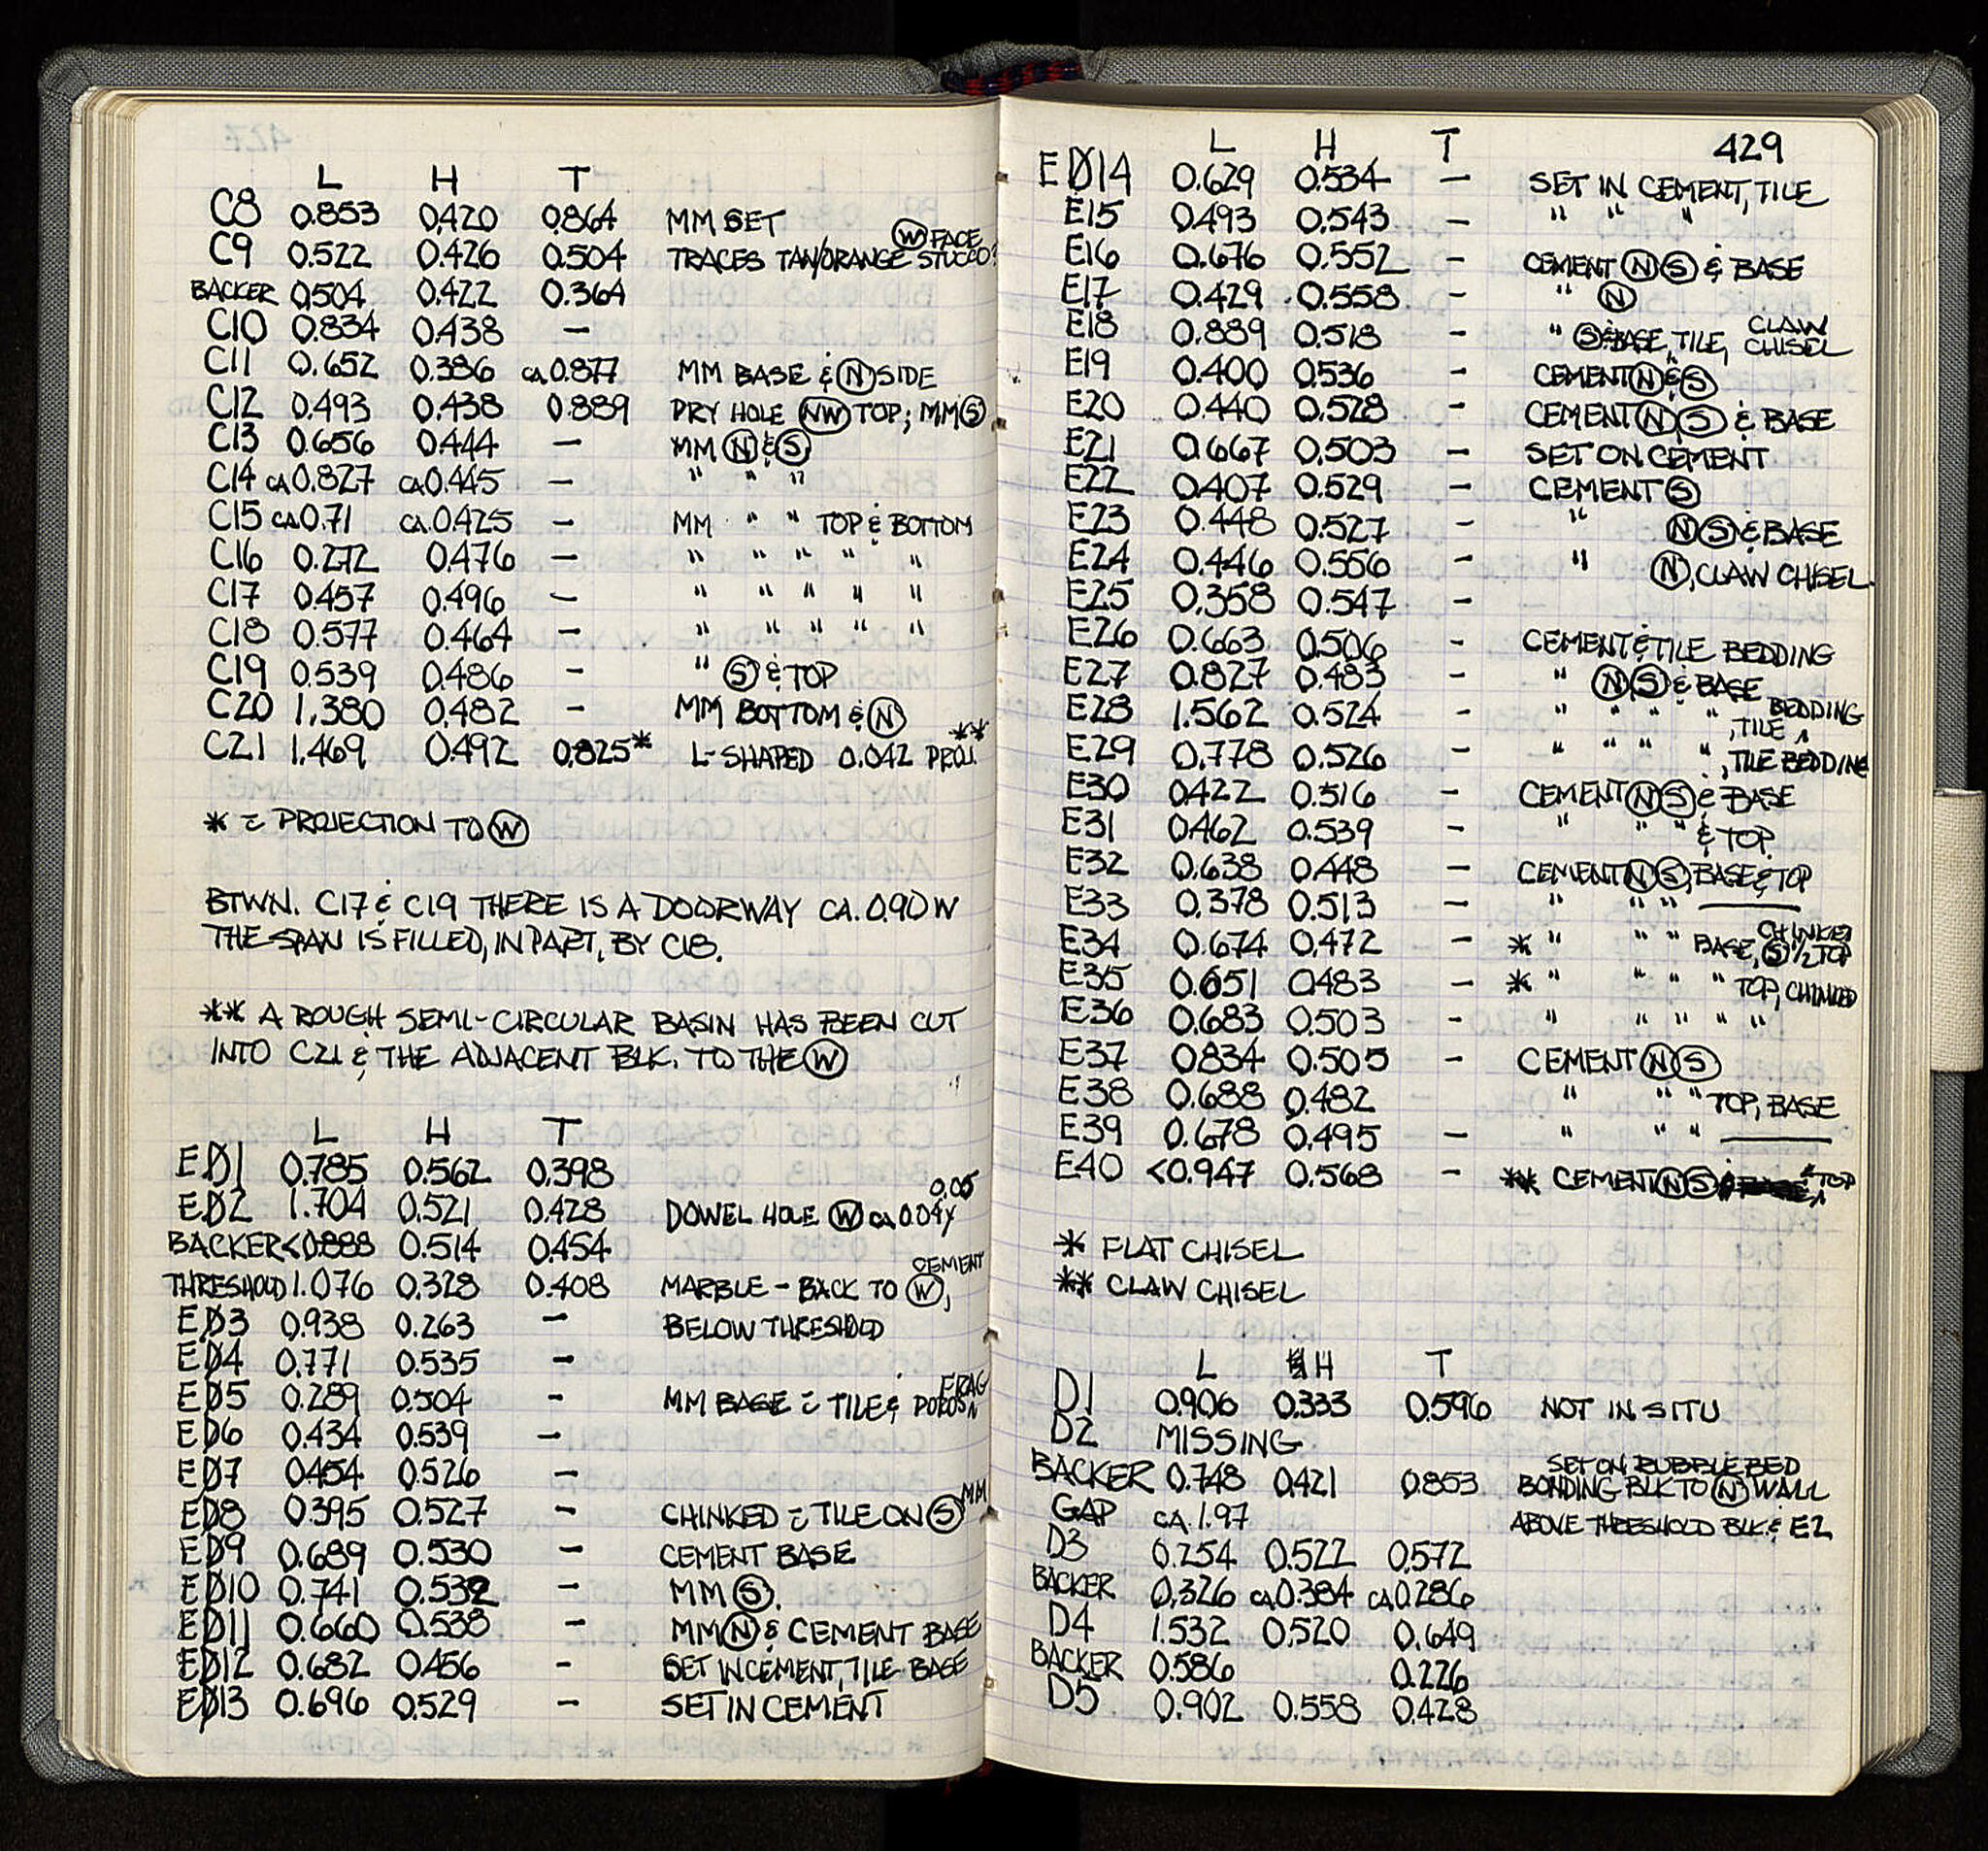 L H T
C8 0.853 0.420 0.864 MM SET
C9 0.522 0.426 0.504 TRACES TAN/ORANGE STUCCO? Ⓦ FACE
BACKER 0.504 0.422 0.364
C10 0.834 0.438 —
C11 0.652 0.386 CA 0.877 MM BASE & Ⓝ SIDE
C12 0.493 0.438 0.889 DRY HOLE (NW) TOP; MM Ⓢ
C13 0.656 0.444 — MM Ⓝ & Ⓢ
C14 CA 0.827 CA 0.445 — " " "
C15 CA 0.71 CA. 0.425 — MM " " TOP & BOTTOM
C16 0.272 0.476 — " " " " "
C17 0.457 0.496 — " " " " "
C18 0.577 0.464 — " " " " "
C19 0.539 0.486 — " Ⓢ & TOP
C20 1.380 0.482 — MM BOTTOM & Ⓝ
C21 1.469 0.492 0.825* L-SHAPED 0.042 PROJ. **
* = PROJECTION TO Ⓦ
BTWN. C17 & C19 THERE IS A DOORWAY CA. 0.90 W
THE SPAN IS FILLED, IN PART, BY C18.
** A ROUGH SEMI-CIRCULAR BASIN HAS BEEN CUT
INTO C21 & THE ADJACENT BLK. TO THE Ⓦ
L H T
E1 0.785 0.562 0.398
E2 1.704 0.521 0.428 DOWEL HOLE Ⓦ CA 0.04 x 0.05
BACKER <0.888 0.514 0.454
THRESHOLD 1.076 0.328 0.408 MARBLE - BACK TO Ⓦ, CEMENT
E3 0.938 0.263 — BELOW THRESHOLD
E4 0.771 0.535 —
E5 0.289 0.504 — MM BASE = TILE & POROS FRAG
E6 0.434 0.539 —
E7 0.454 0.526 —
E8 0.395 0.527 — CHINKED = TILE ON Ⓢ MM
E9 0.689 0.530 — CEMENT BASE
E10 0.741 0.532 — MM Ⓢ.
E11 0.660 0.538 — MM Ⓝ & CEMENT BASE
E12 0.682 0.456 — SET IN CEMENT, TILE BASE
E13 0.696 0.529 — SET IN CEMENT
429
L H T
E14 0.629 0.534 — SET IN CEMENT, TILE
E15 0.493 0.543 — " " "
E16 0.676 0.552 — CEMENT Ⓝ Ⓢ & BASE
E17 0.429 0.558 — " Ⓝ
E18 0.889 0.518 — " Ⓢ & BASE, TILE, CLAW CHISEL
E19 0.400 0.536 — CEMENT Ⓝ & Ⓢ
E20 0.440 0.528 — CEMENT Ⓝ Ⓢ & BASE
E21 0.667 0.503 — SET ON CEMENT
E22 0.407 0.529 — CEMENT Ⓢ
E23 0.448 0.527 — " Ⓝ Ⓢ & BASE
E24 0.446 0.556 — " Ⓝ, CLAW CHISEL
E25 0.358 0.547 —
E26 0.663 0.506 — CEMENT & TILE BEDDING
E27 0.827 0.483 — " Ⓝ Ⓢ & BASE
E28 1.562 0.524 — " " " ", TILE BEDDING
E29 0.778 0.526 — " " " ", TILE BEDDING
E30 0.422 0.516 — CEMENT Ⓝ Ⓢ & BASE
E31 0.462 0.539 — " " " & TOP
E32 0.638 0.448 — CEMENT Ⓝ Ⓢ, BASE & TOP
E33 0.378 0.513 — " " " ——
E34 0.674 0.472 — * " " " BASE, Ⓢ 1/2 TOP CHINKED
E35 0.651 0.483 — * " " " " TOP, CHINKED
E36 0.683 0.503 — " " " " "
E37 0.834 0.505 — CEMENT Ⓝ Ⓢ
E38 0.688 0.482 " " " TOP, BASE
E39 0.678 0.495 — " " " ——
E40 <0.947 0.568 — ** CEMENT Ⓝ Ⓢ & TOP
* FLAT CHISEL
** CLAW CHISEL
L H T
D1 0.906 0.333 0.596 NOT IN SITU
D2 MISSING
BACKER 0.748 0.421 0.853 SET ON RUBBLE BED BONDING BLK TO Ⓝ WALL
GAP CA. 1.97 ABOVE THRESHOLD BLK. & E2
D3 0.254 0.522 0.572
BACKER 0.326 CA 0.384 CA 0.286
D4 1.532 0.520 0.649
BACKER 0.586 0.226
D5 0.902 0.558 0.428